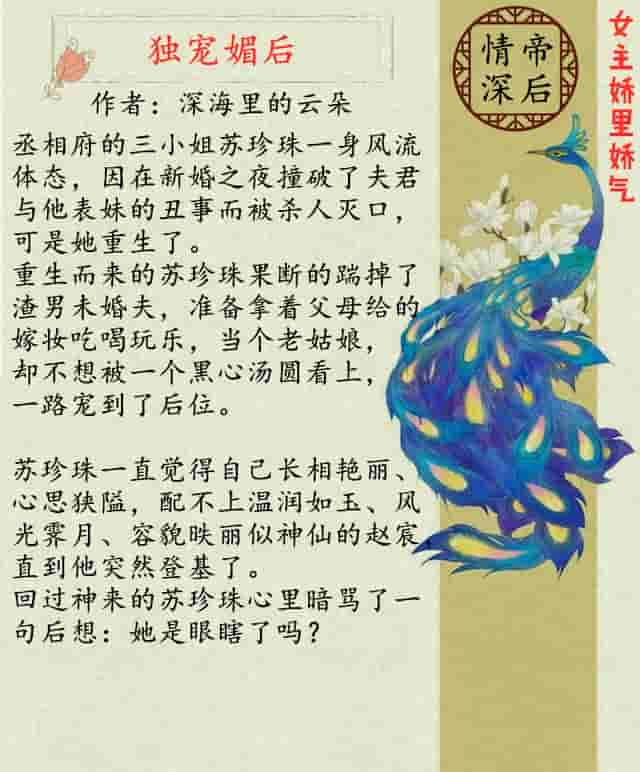 独宠媚后
作者：深海里的云朵
丞相府的三小姐苏珍珠一身风流
体态，因在新婚之夜撞破了夫君
与他表妹的丑事而被杀人灭口，
可是她重生了。
重生而来的苏珍珠果断的踹掉了
渣男未婚夫，准备拿着父母给的
嫁妆吃喝玩乐，当个老姑娘，
却不想被一个黑心汤圆看上，
一路宠到了后位。
苏珍珠一直觉得自己长相艳丽、
心思狭隘，配不上温润如玉、风
光霁月、容貌昳丽似神仙的赵宸
直到他突然登基了。
回过神来的苏珍珠心里暗骂了一
句后想：她是眼瞎了吗？
情帝
深后
女主娇里娇气